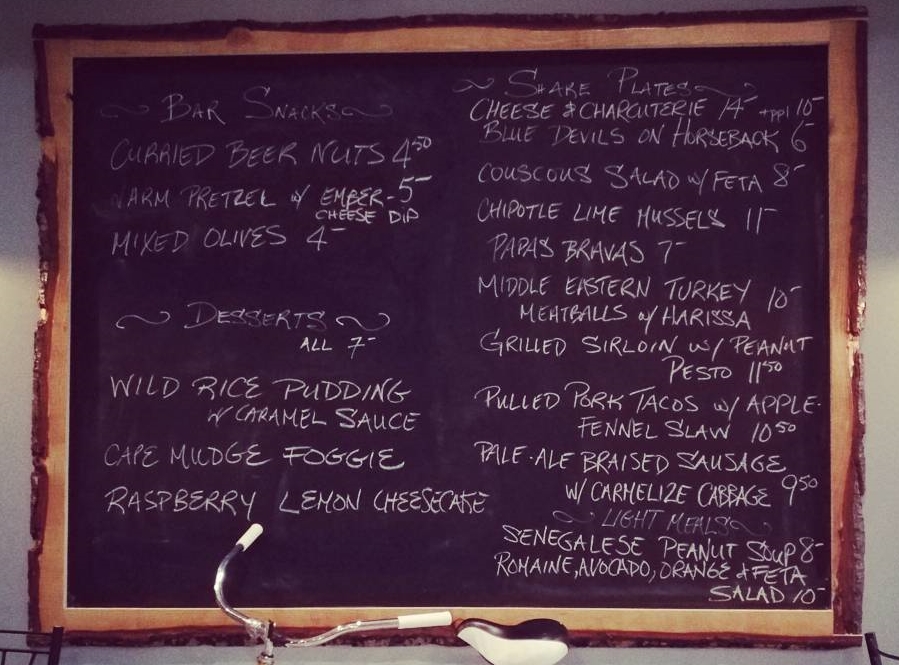 Bar Snacks
CURRIED BEER NUTS 4.50
WARM PRETZEL W/ EMBER- 5-
CHEESE DIP
MIXED OLIVES 4-
DESSERTS
ALL 7-
WILD RICE PUDDING
W/ CARAMEL SAUCE
CAPE MUDGE FOGGIE
RASPBERRY LEMON CHEESECAKE
SHARE PLATES
CHEESE & CHARCUTERIE 14- +PPL 10-
BLUE DEVILS ON HORSEBACK 6-
COUSCOUS SALAD W/ FETA 8-
CHIPOTLE LIME MUSSELS 11-
PAPAS BRAVAS 7-
MIDDLE EASTERN TURKEY 10-
MEATBALLS W/ HARISSA
GRILLED SIRLOIN W/ PEANUT
PESTO 11.50
PULLED PORK TACOS W/ APPLE-
FENNEL SLAW 10.50
PALE-ALE BRAISED SAUSAGE
W/ CARMELIZE CABBAGE 9.50
LIGHT MEALS
SENEGALESE PEANUT SOUP 8-
ROMAINE, AVOCADO, ORANGE & FETA
SALAD 10-